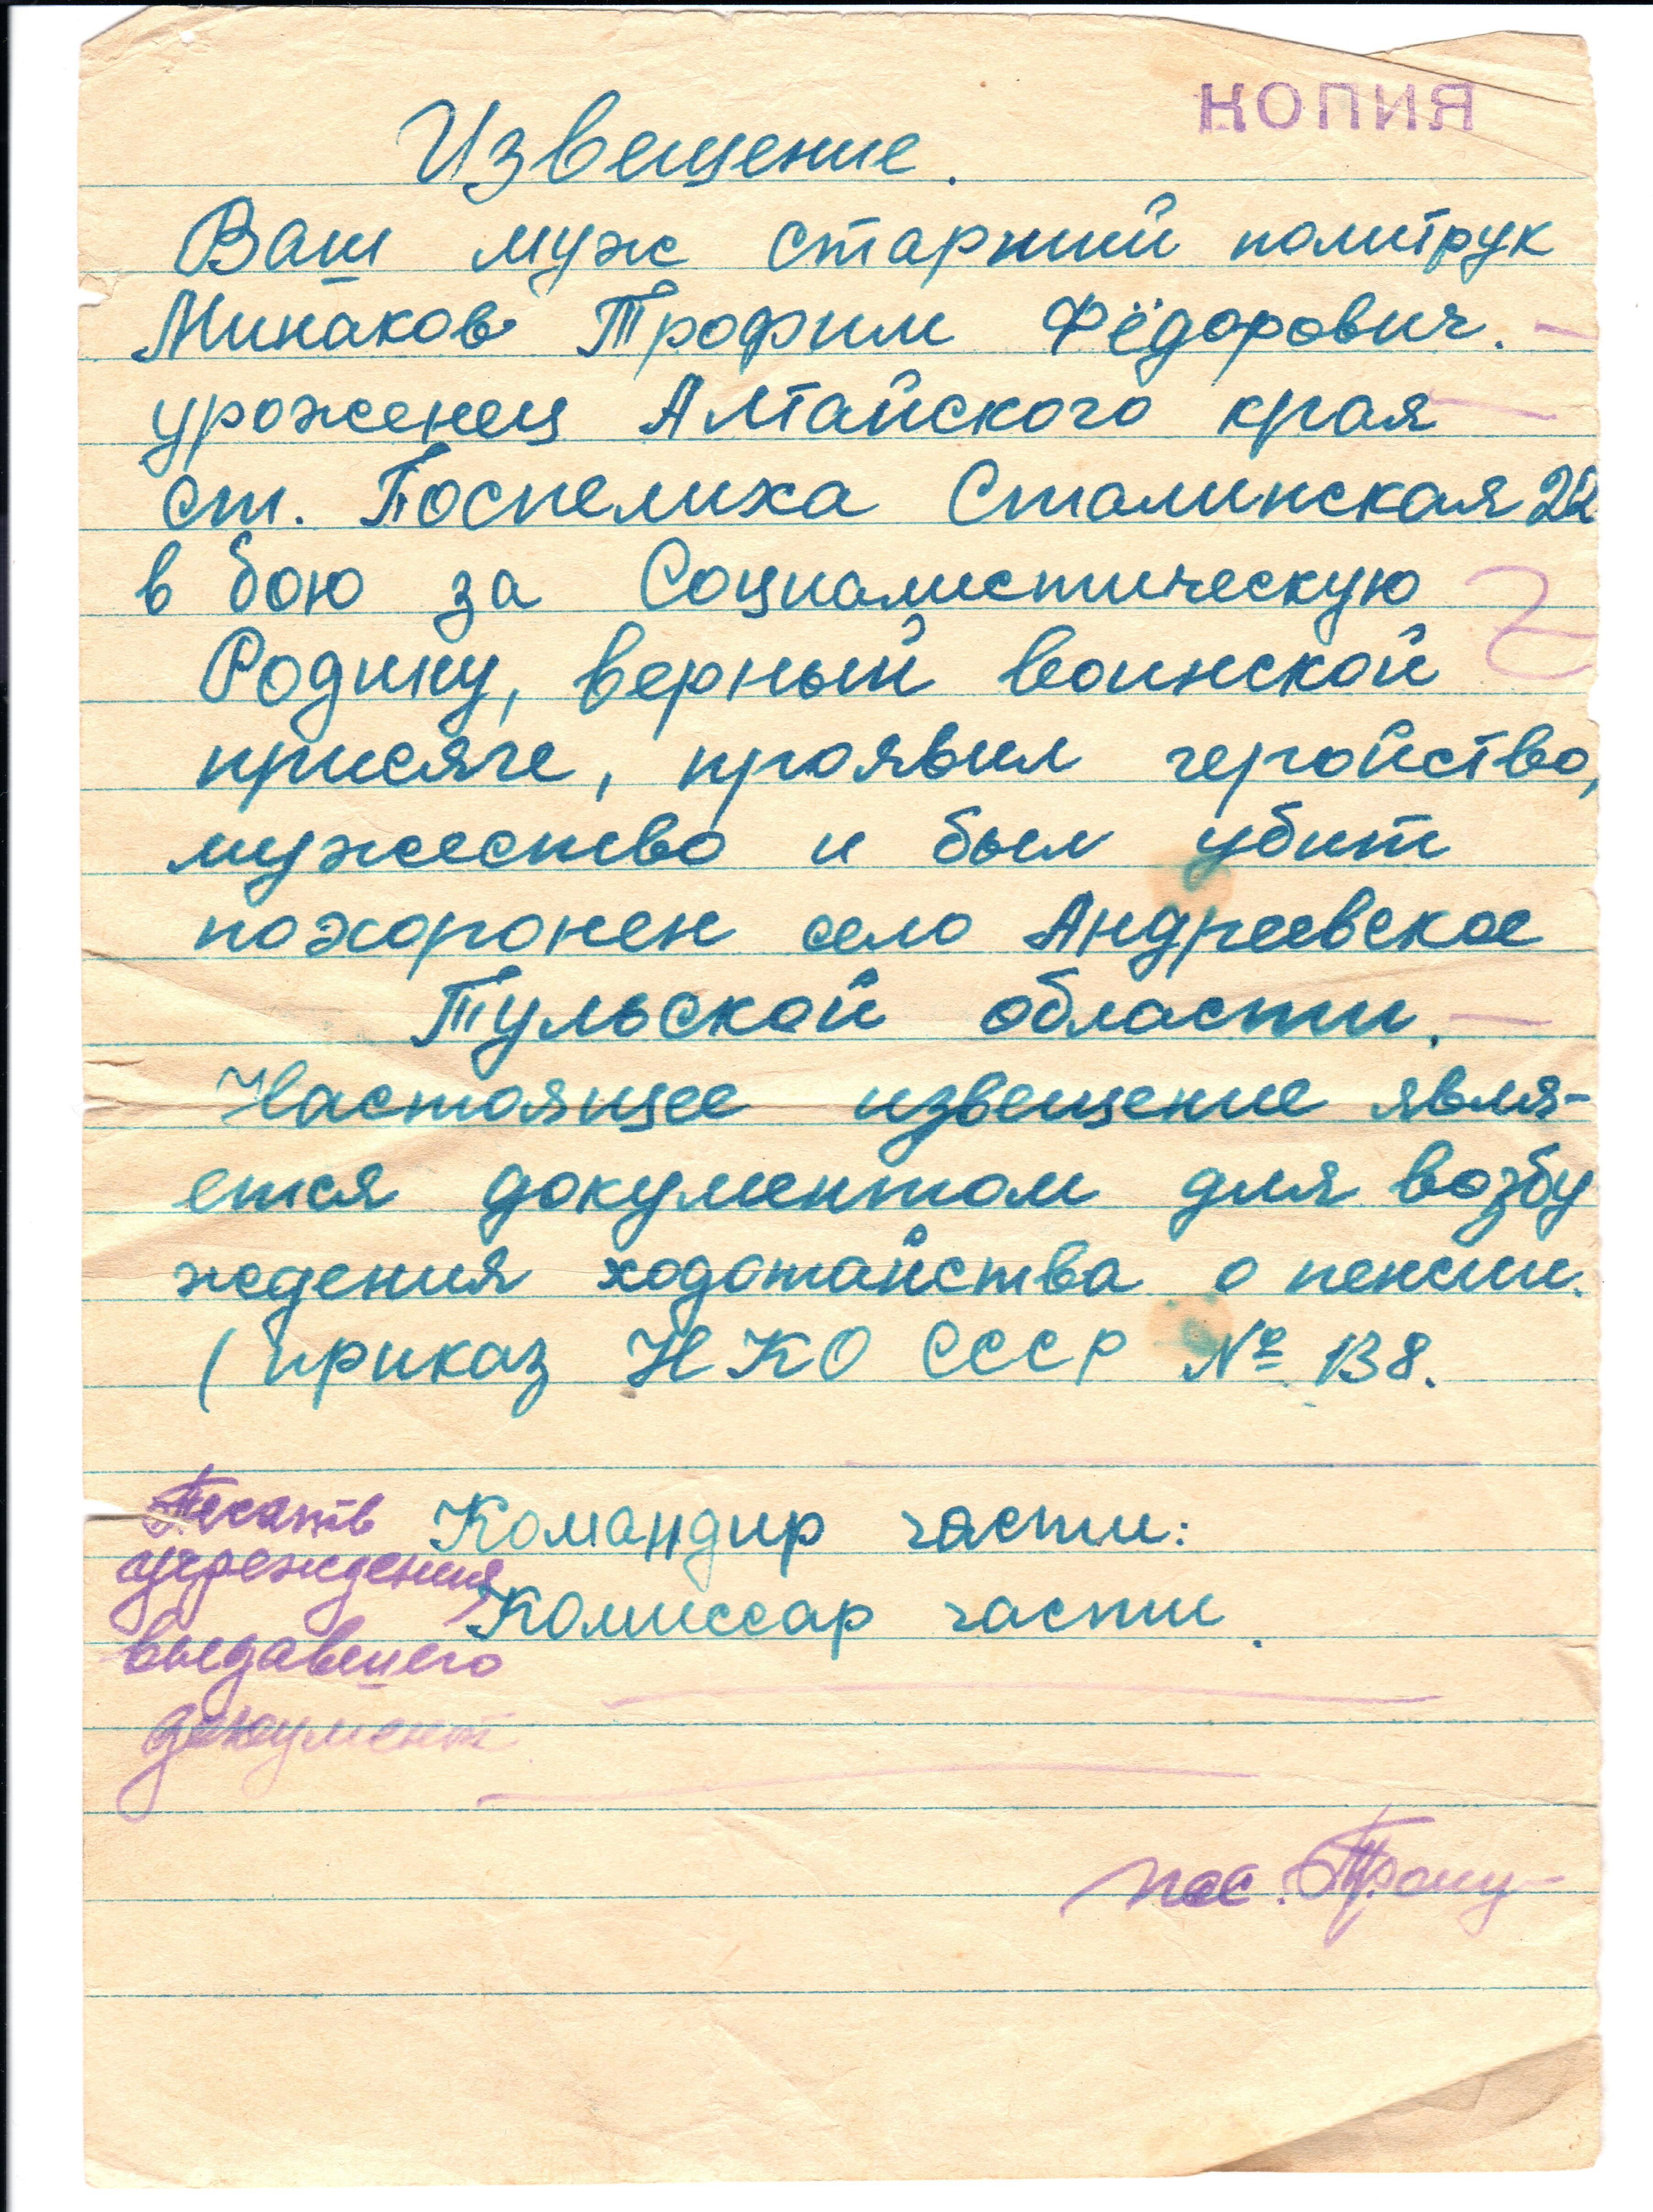 КОПИЯ
Извещение.
Ваш муж старший политрук
Минаков Трофим Фёдорович.
уроженец Алтайского края
ст. Поспелиха Сталинская 22
в бою за Социалистическую
Родину, верный воинской
присяге, проявил геройство,
мужество и был убит
похоронен село Андреевское
Тульской области.
Настоящее извещение явля-
ется документом для возбу
ждения ходотайства о пенсии.
(приказ НКО СССР № 138.
Командир части:
Комиссар части.
Печать
учреждения
выдавшего
документ